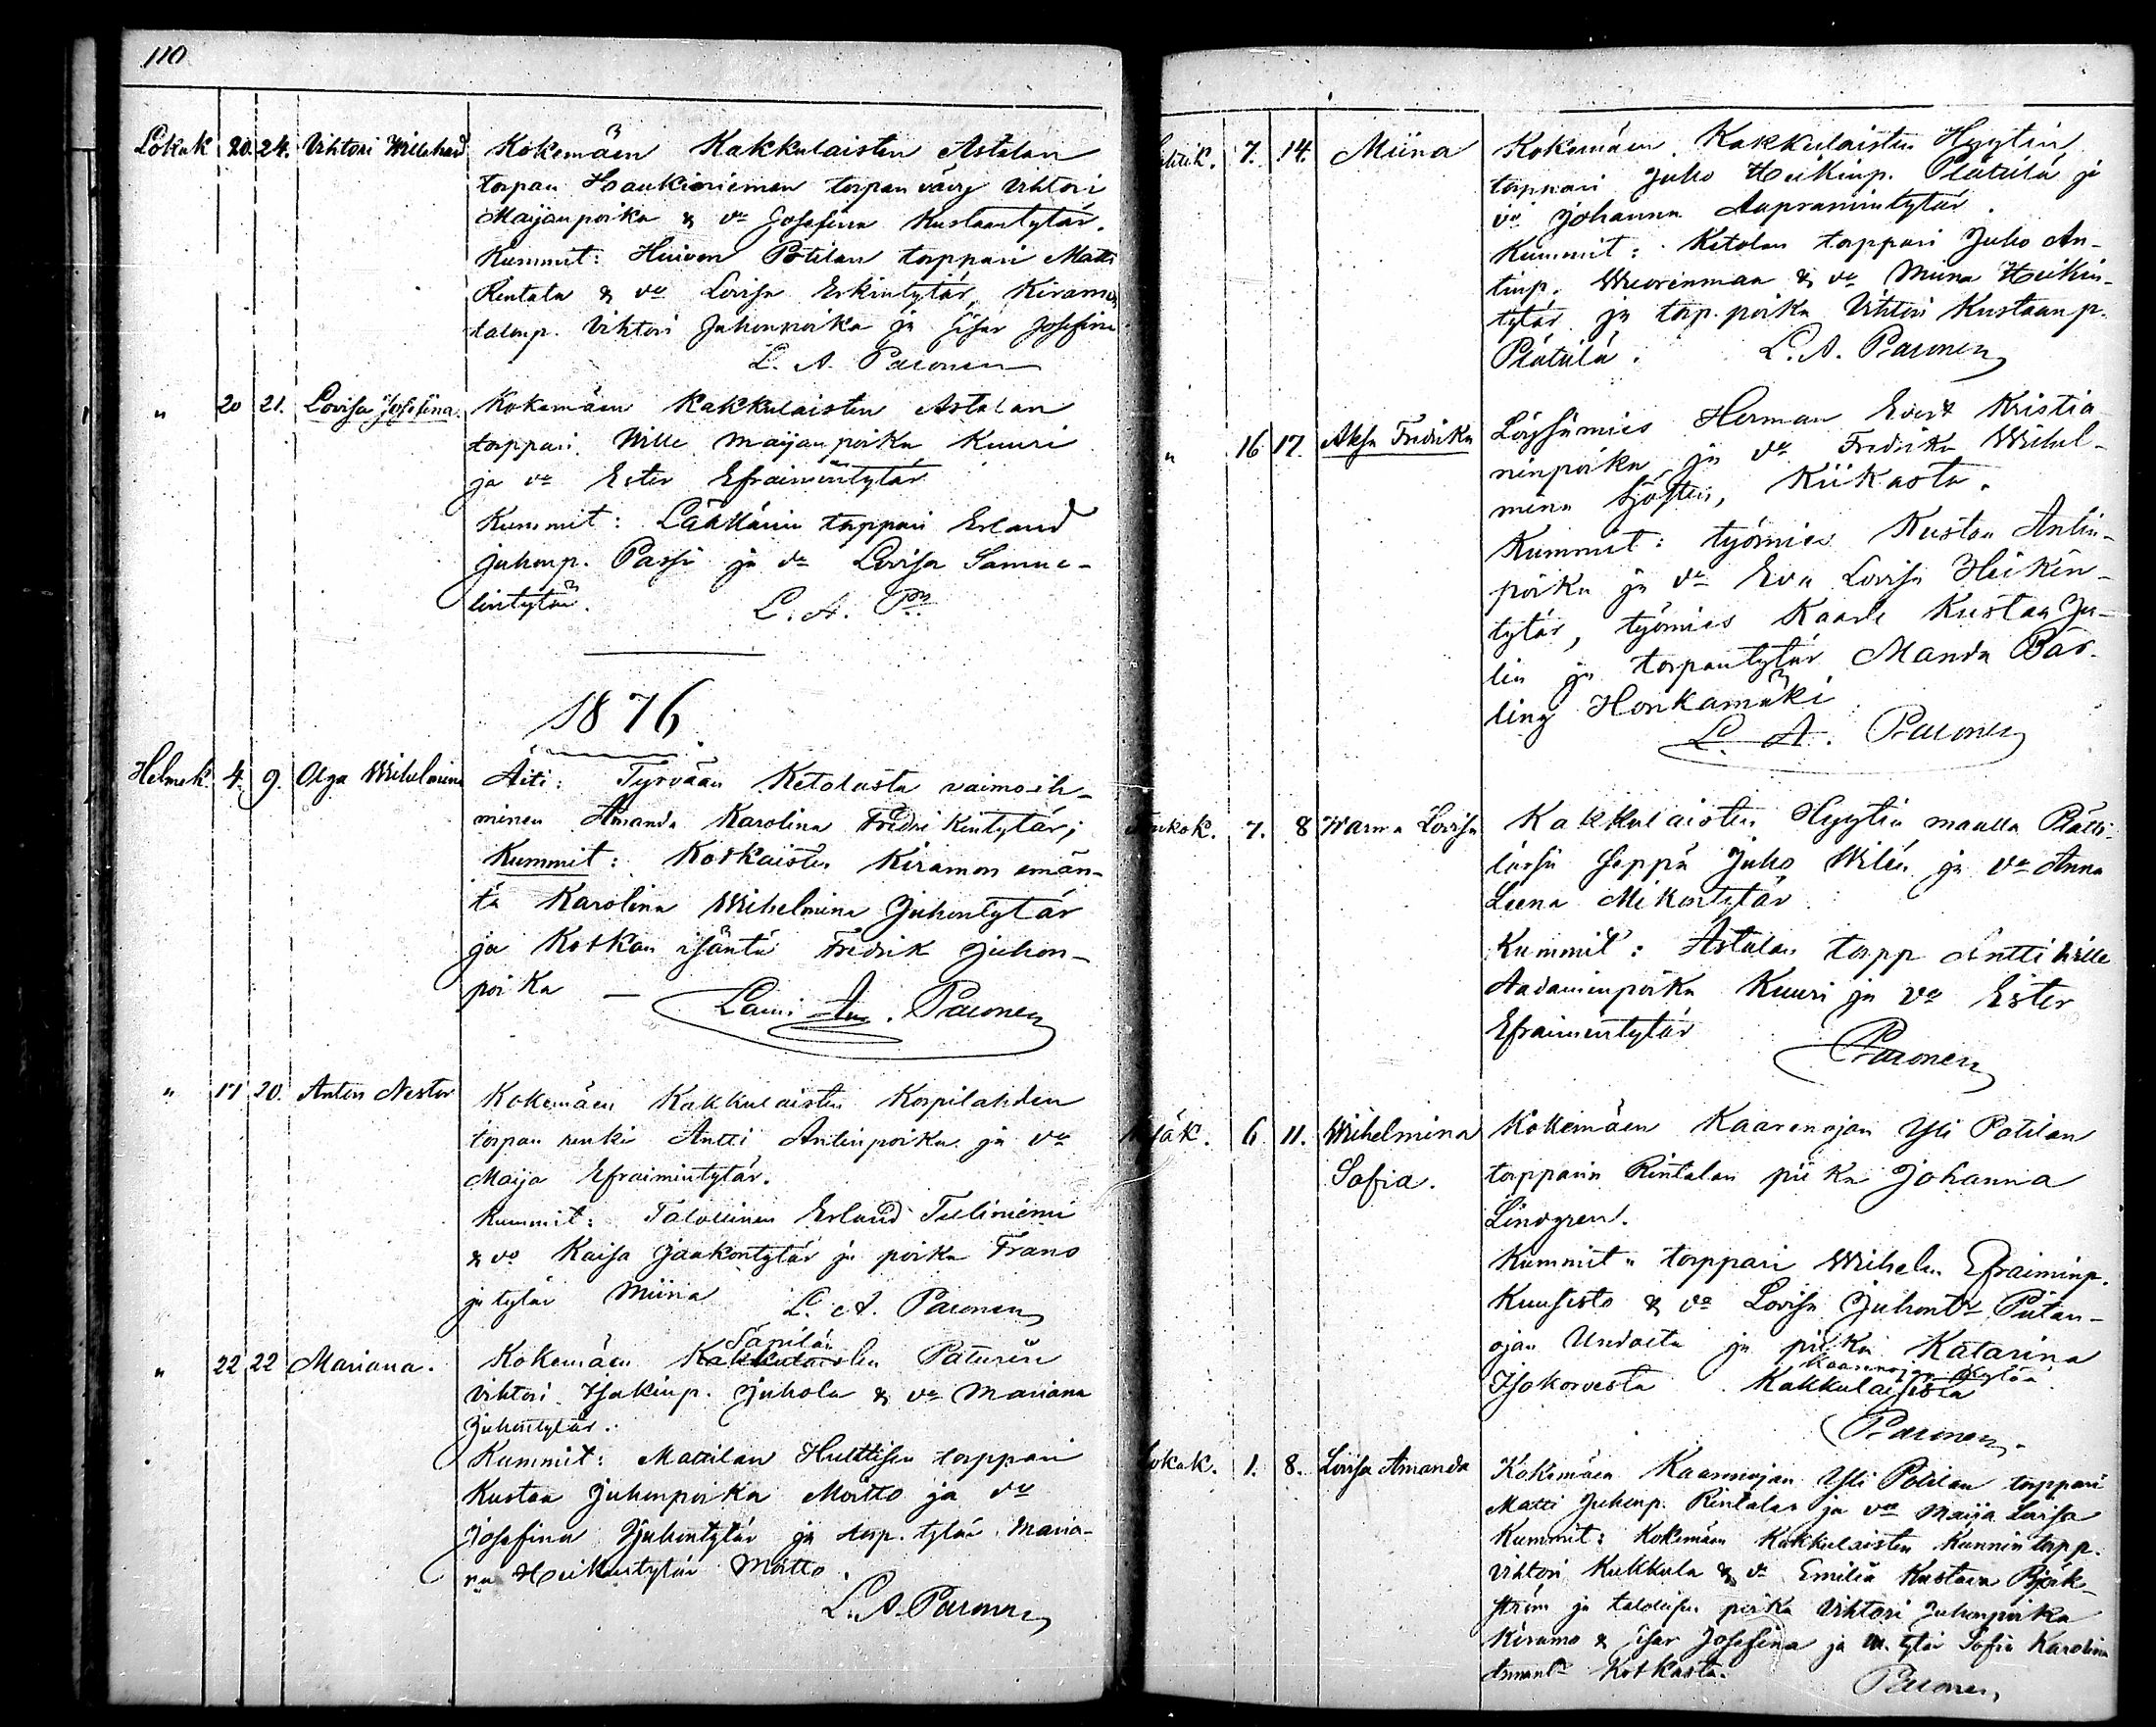 110
Lokak 20. 24. Vihtori Willehad Kokemäen Kakkulaisten Astalan
torpan Haukiniemen torpan väwy Vihtori
Maijanpoika & vo Josefina Kustaantytär.
Kummit: Huivon Potilan torppari Matti
Rintala & vo Lovisa Erkintytär, Kiramon
talonp. Vihtori Juhonpoika ja sisar Josefina
L. A. Paronen
" 20 21. Lovisa Josefina. Kokemäen Kakkulaisten Astalan
torppari Wille Maijanpoika Kuuri
ja vo Ester Efraimintytär
Kummit: torppari Erland
Juhonp. Passi ja vo Lovisa Samue-
lintytär. L. A. Pn
1876.
Helmek. 4. 9. Olga Wilhelmina Äiti: Tyrvään Ketolasta vaimoih-
minen Amanda Karolina Fredrikintytär;
Kummit: Kotkaisten Kiramon emän-
tä Karolina Wilhelmina Juhontytär
ja Kotkan isäntä Fredrik Juhon-
poika — Lauri Paronen
" 17 20. Anton Nestor Kokemäen Kakkulaisten Korpilahden
torpan renki Antti Antinpoika ja vo
Maija Efraimintytär.
Kummit: Talollinen Erland Tuliniemi
& vo Kaisa Jaakontytär ja poika Frans
ja tytär Miina L. A. Paronen
Säpilän
" 22 22 Mariana. Kokemäen Kakkulaisten Paturin
Vihtori Isakinp. Juhola & vo Mariana
Juhontytär.
Kummit: Matilan Hulttisen torppari
Kustaa Juhonpoika Mörttö ja vo
Josefina Juhontytär ja torp. tytär Maria-
na Heikintytär Mörttö.
L. A. Paronen
7. 14. Miina Kokemäen Kakkulaisten Hyytin
torppari Juho Heikinp. Plätälä ja
vo Johanna Aapramintytär.
Kummit: Ketolan torppari Juho An-
tinp. Wuorenmaa & vo Miina Heikin-
tytär ja torp. poika Vihtori Kustaanp.
Plätälä. L. A. Paronen
" 16 17. Aksa Fredrika Löysämies Herman Evert Kristia
ninpoika ja vo Fredrika Wilhel-
mina Sjösten, Kiikasta.
Kummit: työmies Kustaa Antin-
poika ja vo Eva Lovisa Heikin-
tytär, työmies Kaarle Kustaa Ju-
lin ja torpantytär Manda Bär-
ling Honkamäki.
L. A. Paronen
Toukok. 7. 8 Warma Lovisa Kakkulaisten Hyytin maalla Plätti-
lässä seppä Juho Wilén ja vo Anna
Leena Mikontytär.
Kummit: Astalan torpp Antti Wille
Aadaminpoika Kuuri ja vo Ester
Efraimintytär
Paronen
6. 11. Wilhelmina Kokemäen Kaarenojan Yli Potilan
Sofia. torpparin Rintalan piika Johanna
Lindgren.
Kummit: torppari Wilhelm Efraiminp.
Kuusisto & vo Lovisa Juhontr Piitan-
ojan Undolta ja piika Katarina
Kaarenojan kylää
Isokorvesta Kakkulaisista
Paronen.
Lokak. 1. 8. Lovisa Amanda Kokemäen Kaarenojan Yli Potilan torppari
Matti Juhonp. Rintalan ja vo Maija Lovisa
Kummit: Kokemäen Kakkulaisten Kunnin torpp.
Vihtori Kukkula & vo Emilia Kustava Björk-
ström ja talollisen poika Vihtori Juhonpoika
Kiramo & sisar Josefina ja m. tytär Sofia Karolina
Kotkasta.
Paronen